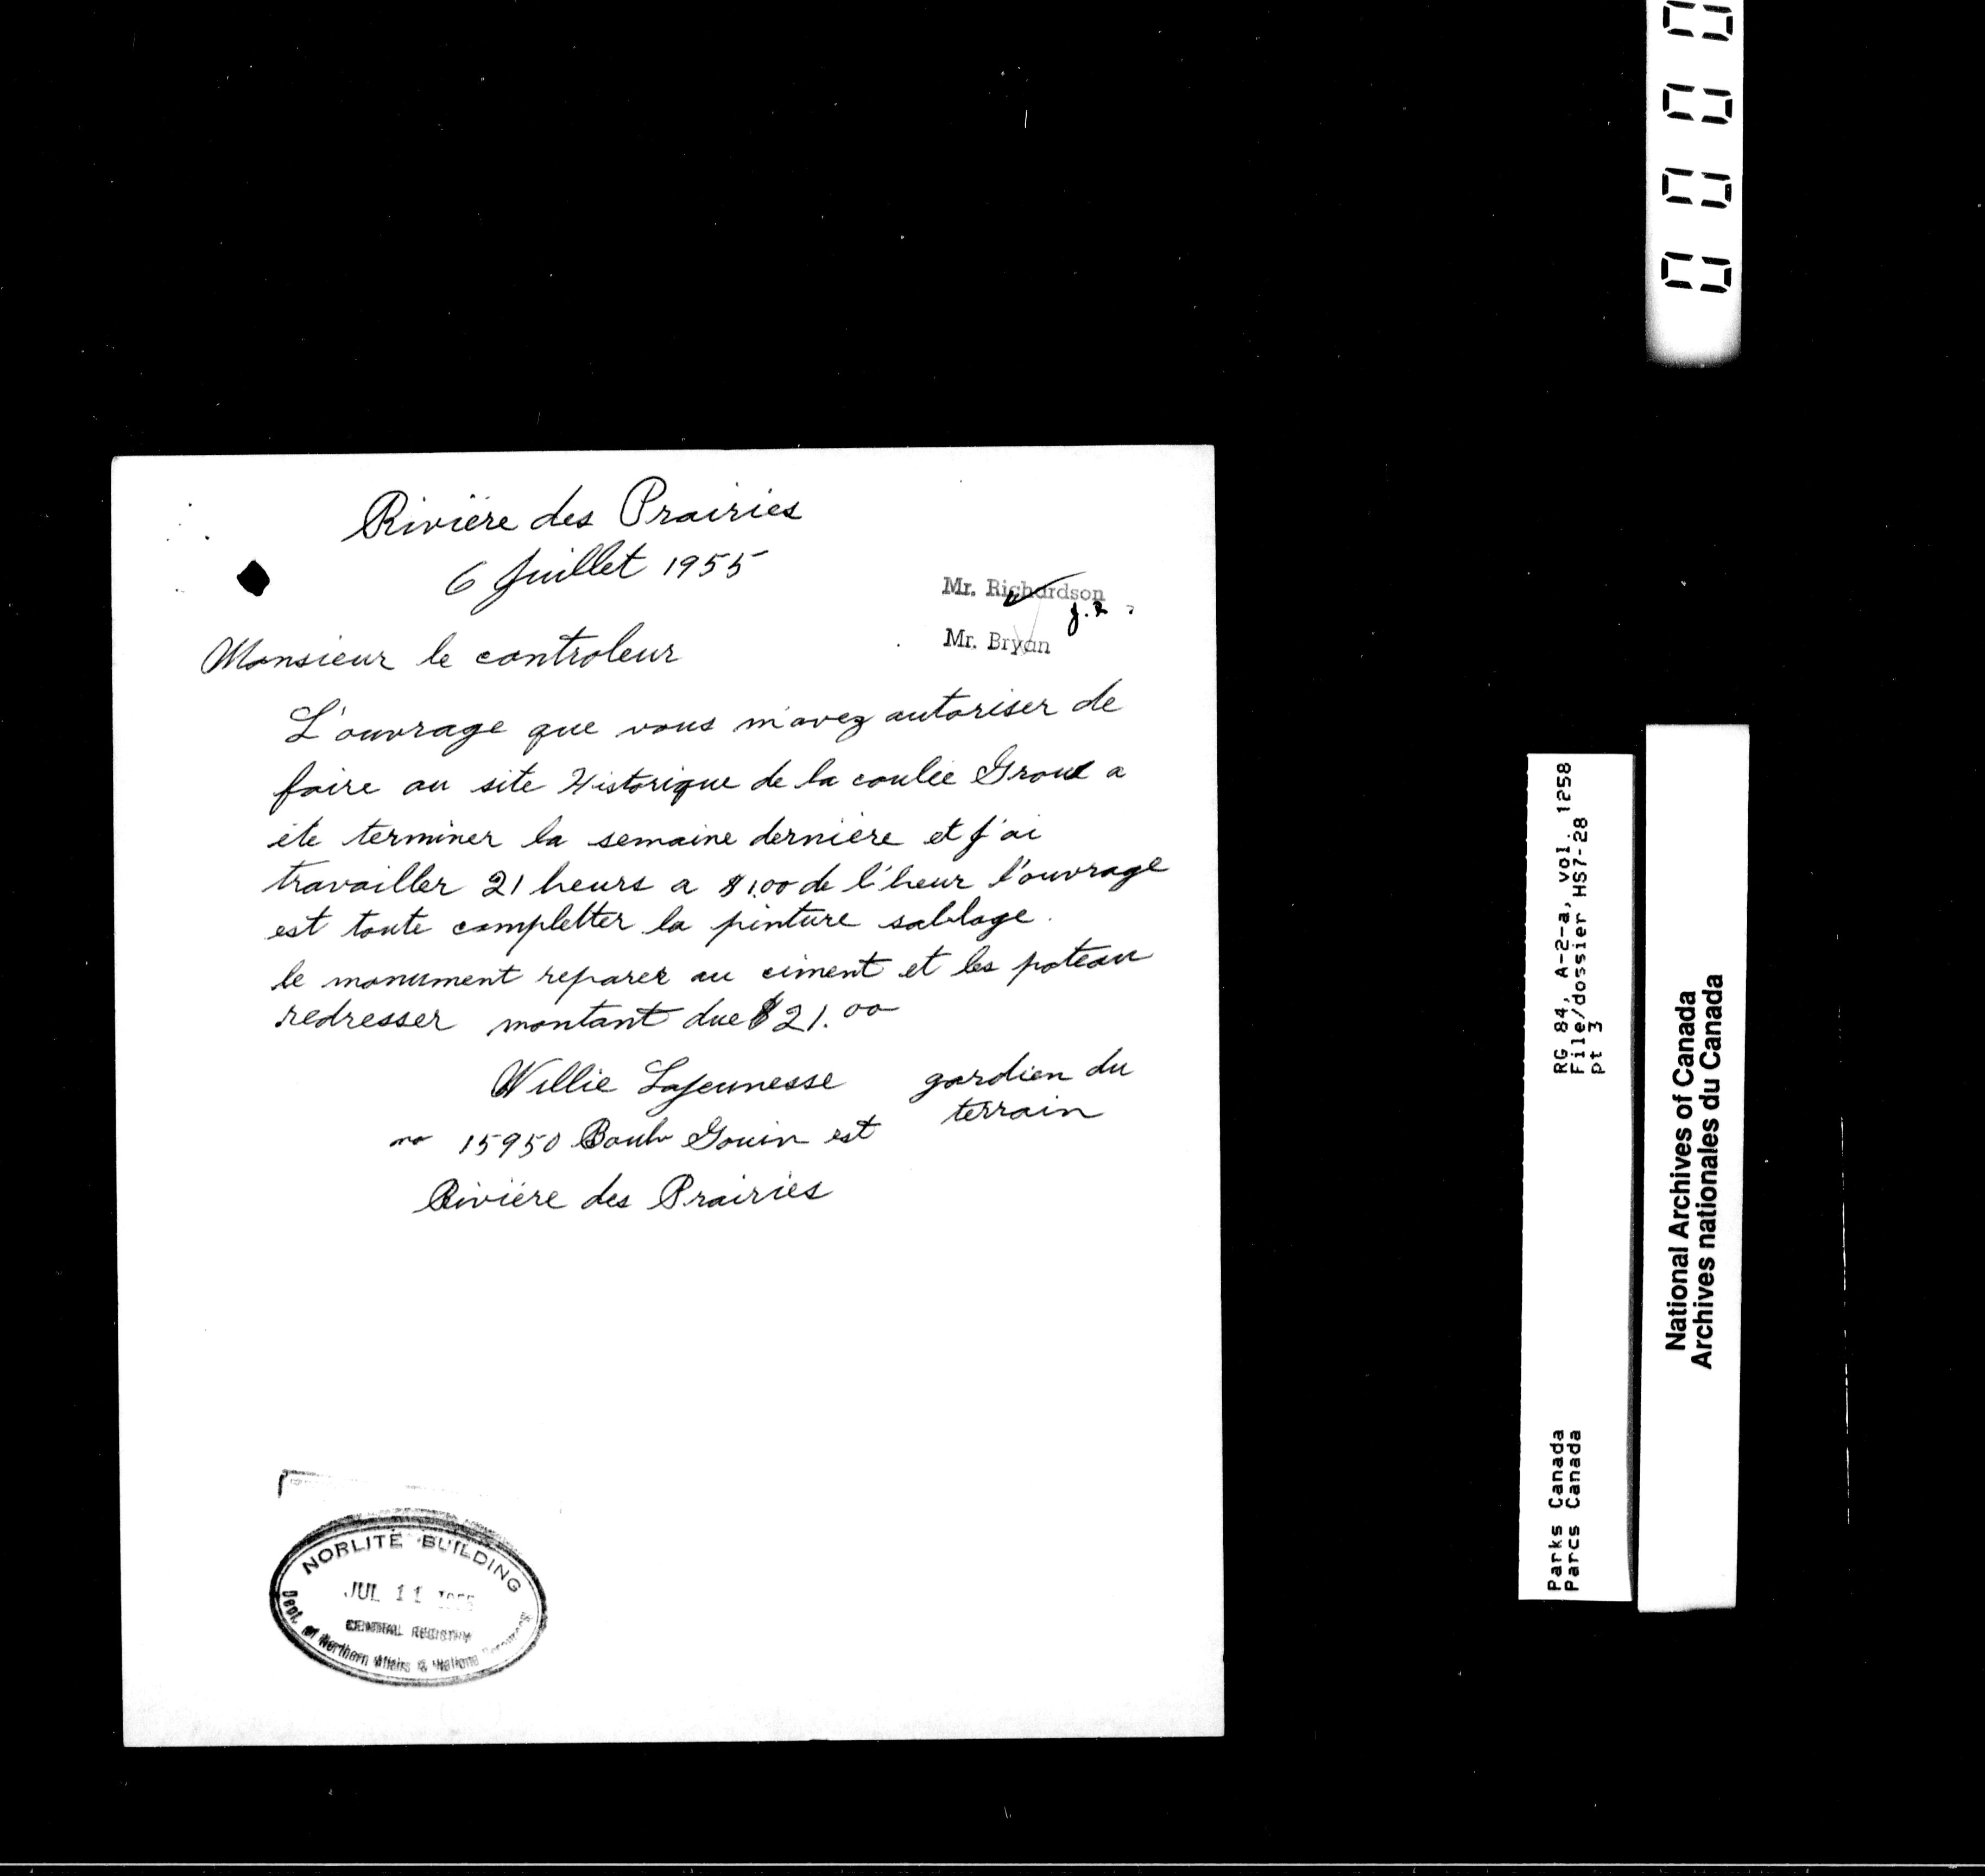 Rivière des Prairies
6 Juillet 1955
Mr. Richardson
J.R.
Mr. Bryan
Monsieur le controleur
L'ouvrage que vous m'avez autoriser de
faire au site Historique de la coulée Groux a
éte terminer la semaine dernière et j'ai
travailler 21 heurs a $1.00 de l'heur l'ouvrage
est toute completter la pinture sablage.
le monument reparer au ciment et les poteau
redresser montant due $21.00
Willie Lajeunesse gardien du
terrain
no 15950 Boulv Gouin est
Rivière des Prairies
NORLITE BUILDING
JUL 11 1955
CENTRAL REGISTRY
Dept. of Northern Affairs & National Resources
0000
RG 84, A-2-a, vol. 1258
File/dossier HS7-28
pt 3
Parks Canada
Parcs Canada
National Archives of Canada
Archives nationales du Canada